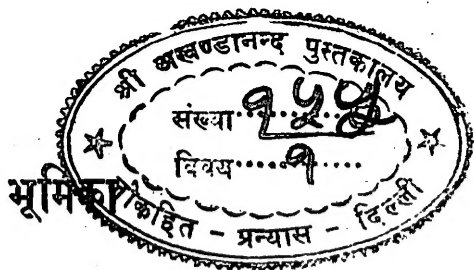 श्री अखण्डानन्द पुस्तकालय
संख्या
विषय......१.....
भूमिका
लोकहित - प्रन्यास - दिल्ली